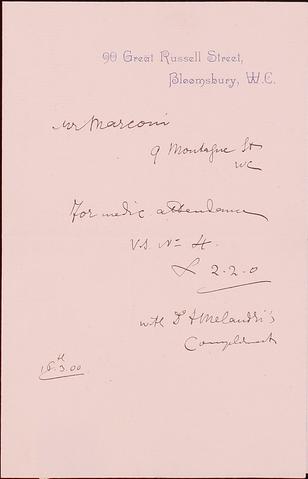 90 Great Russell Street,
Bloomsbury, W.C.
Mr Marconi
9 Montague St
WC
For medic attendance
V.S. No 4.
£ 2-2-0
with Dr A Melandri's
Compliments
16th.3.00